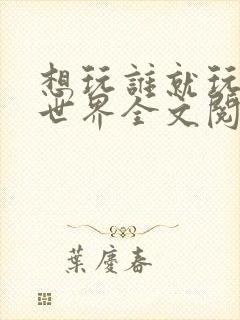 想玩誰就玩
世界全文閱
葉慶春